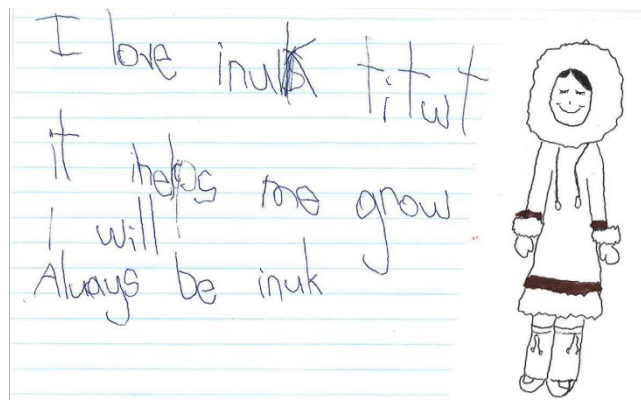 I love inuk titut
it helps me grow
I will
Always be inuk